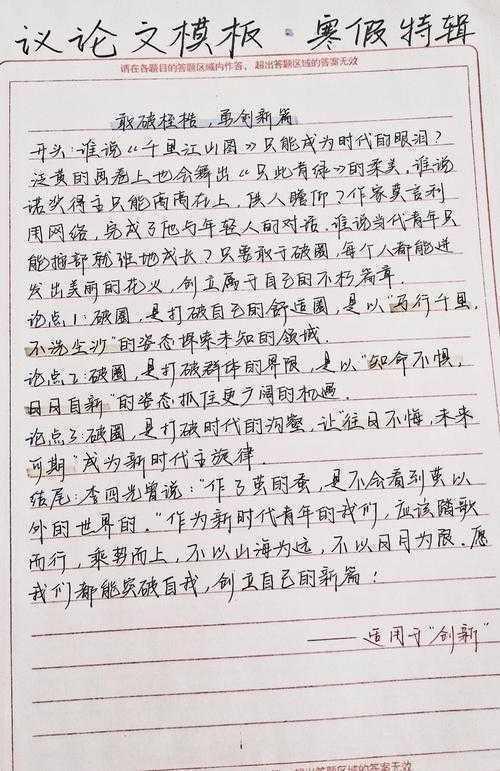 议论文模板·寒假特辑
请在各题目的答题区域内作答，超出答题区域的答案无效
敢破桎梏，勇创新篇
开头：谁说《千里江山图》只能成为时代的眼泪？
泛黄的画卷上也会舞出《只此青绿》的柔美，谁说
诺奖得主只能高高在上，供人瞻仰？作家莫言利
用网络，完成了他与年轻人的对话。谁说当代青年只
能按部就班地成长？只要敢于破圈，每个人都能迸
发出美丽的花火，创立属于自己的不朽篇章。
论点1：破圈，是打破自己的舒适圈，是以“万行千里，
不洗尘沙”的姿态探索未知的领域.
论点2：破圈，是打破群体的界限，是以“知命不惧，
日日自新”的姿态抓住更广阔的机遇.
论点3：破圈，是打破时代的沟壑，让“往日不悔，未来
可期”成为新时代主旋律.
结尾：李四光曾说：“作了茧的蚕，是不会看到茧以
外的世界的.”作为新时代青年的我们，应该踏歌
而行，乘势而上，不以山海为远，不以日月为限.愿
我们都能突破自我，创立自己的新篇！
——适用于“创新”
超出答题区域的答案无效